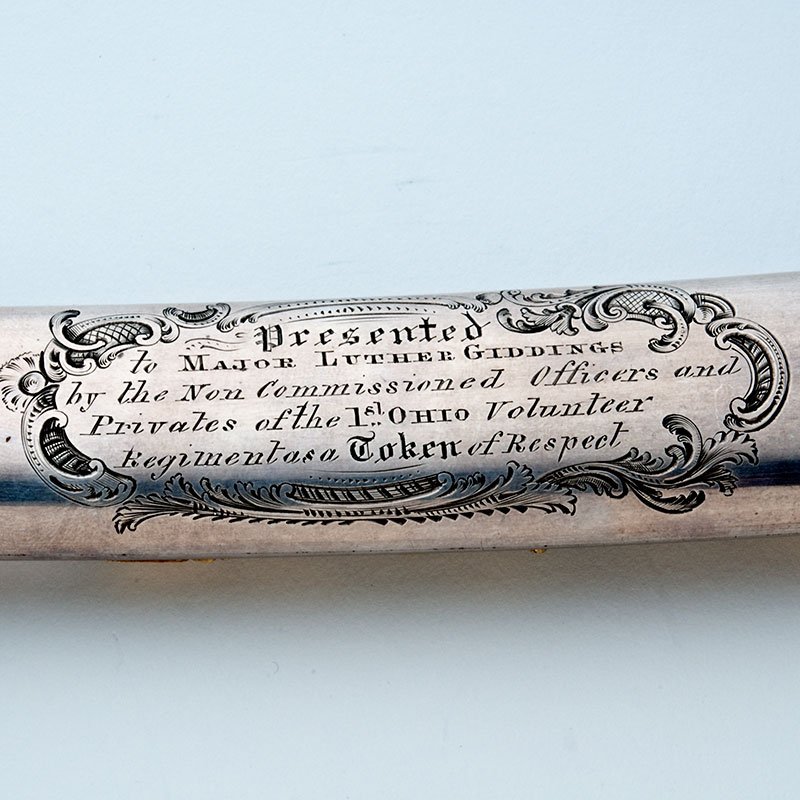 Presented
to Major Luther Giddings
by the Non Commissioned Officers and
Privates of the 1st Ohio Volunteer
Regiment as a Token of Respect